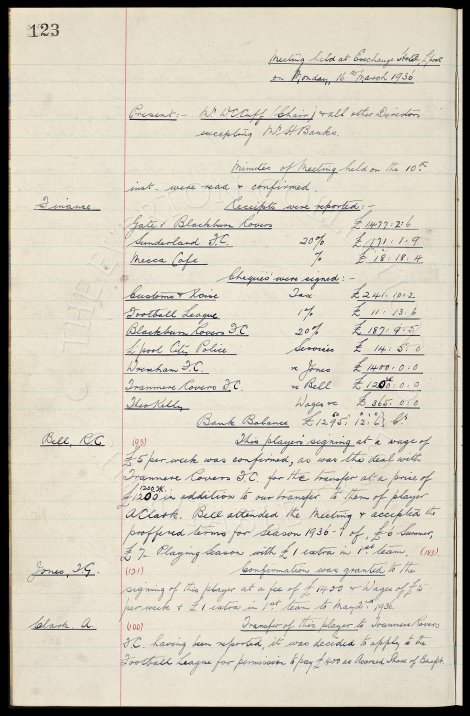 123
Meeting held at Exchange Hotel, L'pool
on Monday, 16th March 1936
Present:- Mr. W.C. Cuff (Chair) & all other Directors
excepting Mr. H. Banks.
Minutes of Meeting held on the 10th
inst. were read & confirmed.
Finance Receipts were reported:-
Gate v Blackburn Rovers £1477:2:6
Sunderland F.C. 20% £171:1:9
Mecca Cafe % £18:18:4
Cheques were signed:-
Customs & Excise Tax £241:10:2
Football League 1% £11:13:6
Blackburn Rovers F.C. 20% £187:9:5
L'pool City Police Services £14:5:0
Wrexham F.C. x Jones £1400:0:0
Tranmere Rovers F.C. x Bell £1200:0:0
Theo Kelly Wages &c £365:0:0
Bank Balance £1295:12:6
Bell, R.C. (93) This player's signing at a wage of
£5 per week was confirmed, as was the deal with
Tranmere Rovers F.C. for the transfer at a price of
£1200 in addition to our transfer to them of player
A Clark. Bell attended the Meeting & accepted the
proffered terms for Season 1936-7 of, £6 Summer,
£7 Playing Season with £1 extra in 1st team. (193)
Jones, T.G. (121) Confirmation was granted to the
signing of this player at a fee of £1400 & Wages of £5
per week & £1 extra in 1st team to May 2nd 1936.
Clark, A. (100) Transfer of this player to Tranmere Rovers
F.C. having been reported, it was decided to apply to the
Football League for permission to pay £400 as Accrued Share of Benefit.